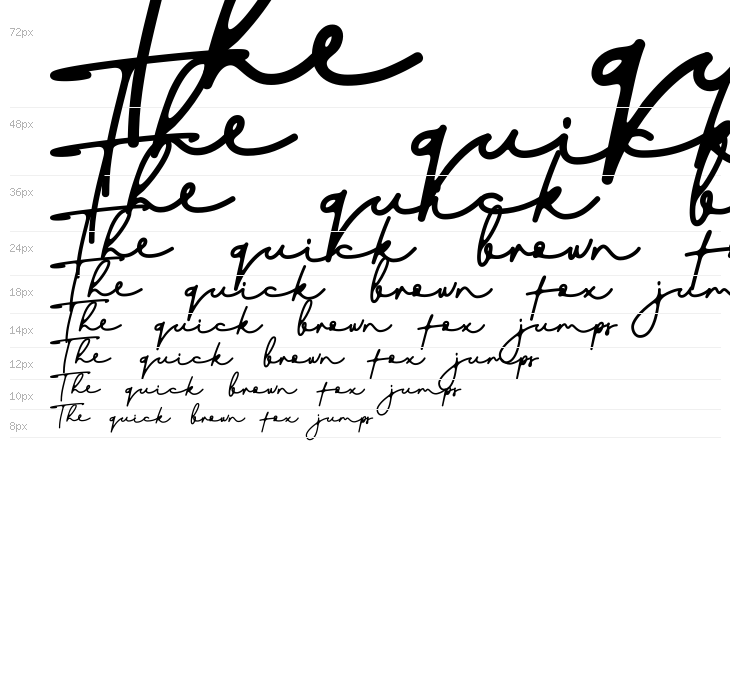 72px The qu
48px The quick
36px The quick b
24px The quick brown
18px The quick brown fox jum
14px The quick brown fox jumps
12px The quick brown fox jumps
10px The quick brown fox jumps
8px The quick brown fox jumps